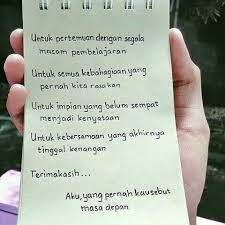 Untuk pertemuan dengan segala
macam pembelajaran
Untuk semua kebahagiaan yang
pernah kita rasakan
Untuk impian yang belum sempat
menjadi kenyataan
Untuk kebersamaan yang akhirnya
tinggal kenangan
Terimakasih...
Aku, yang pernah kausebut
masa depan